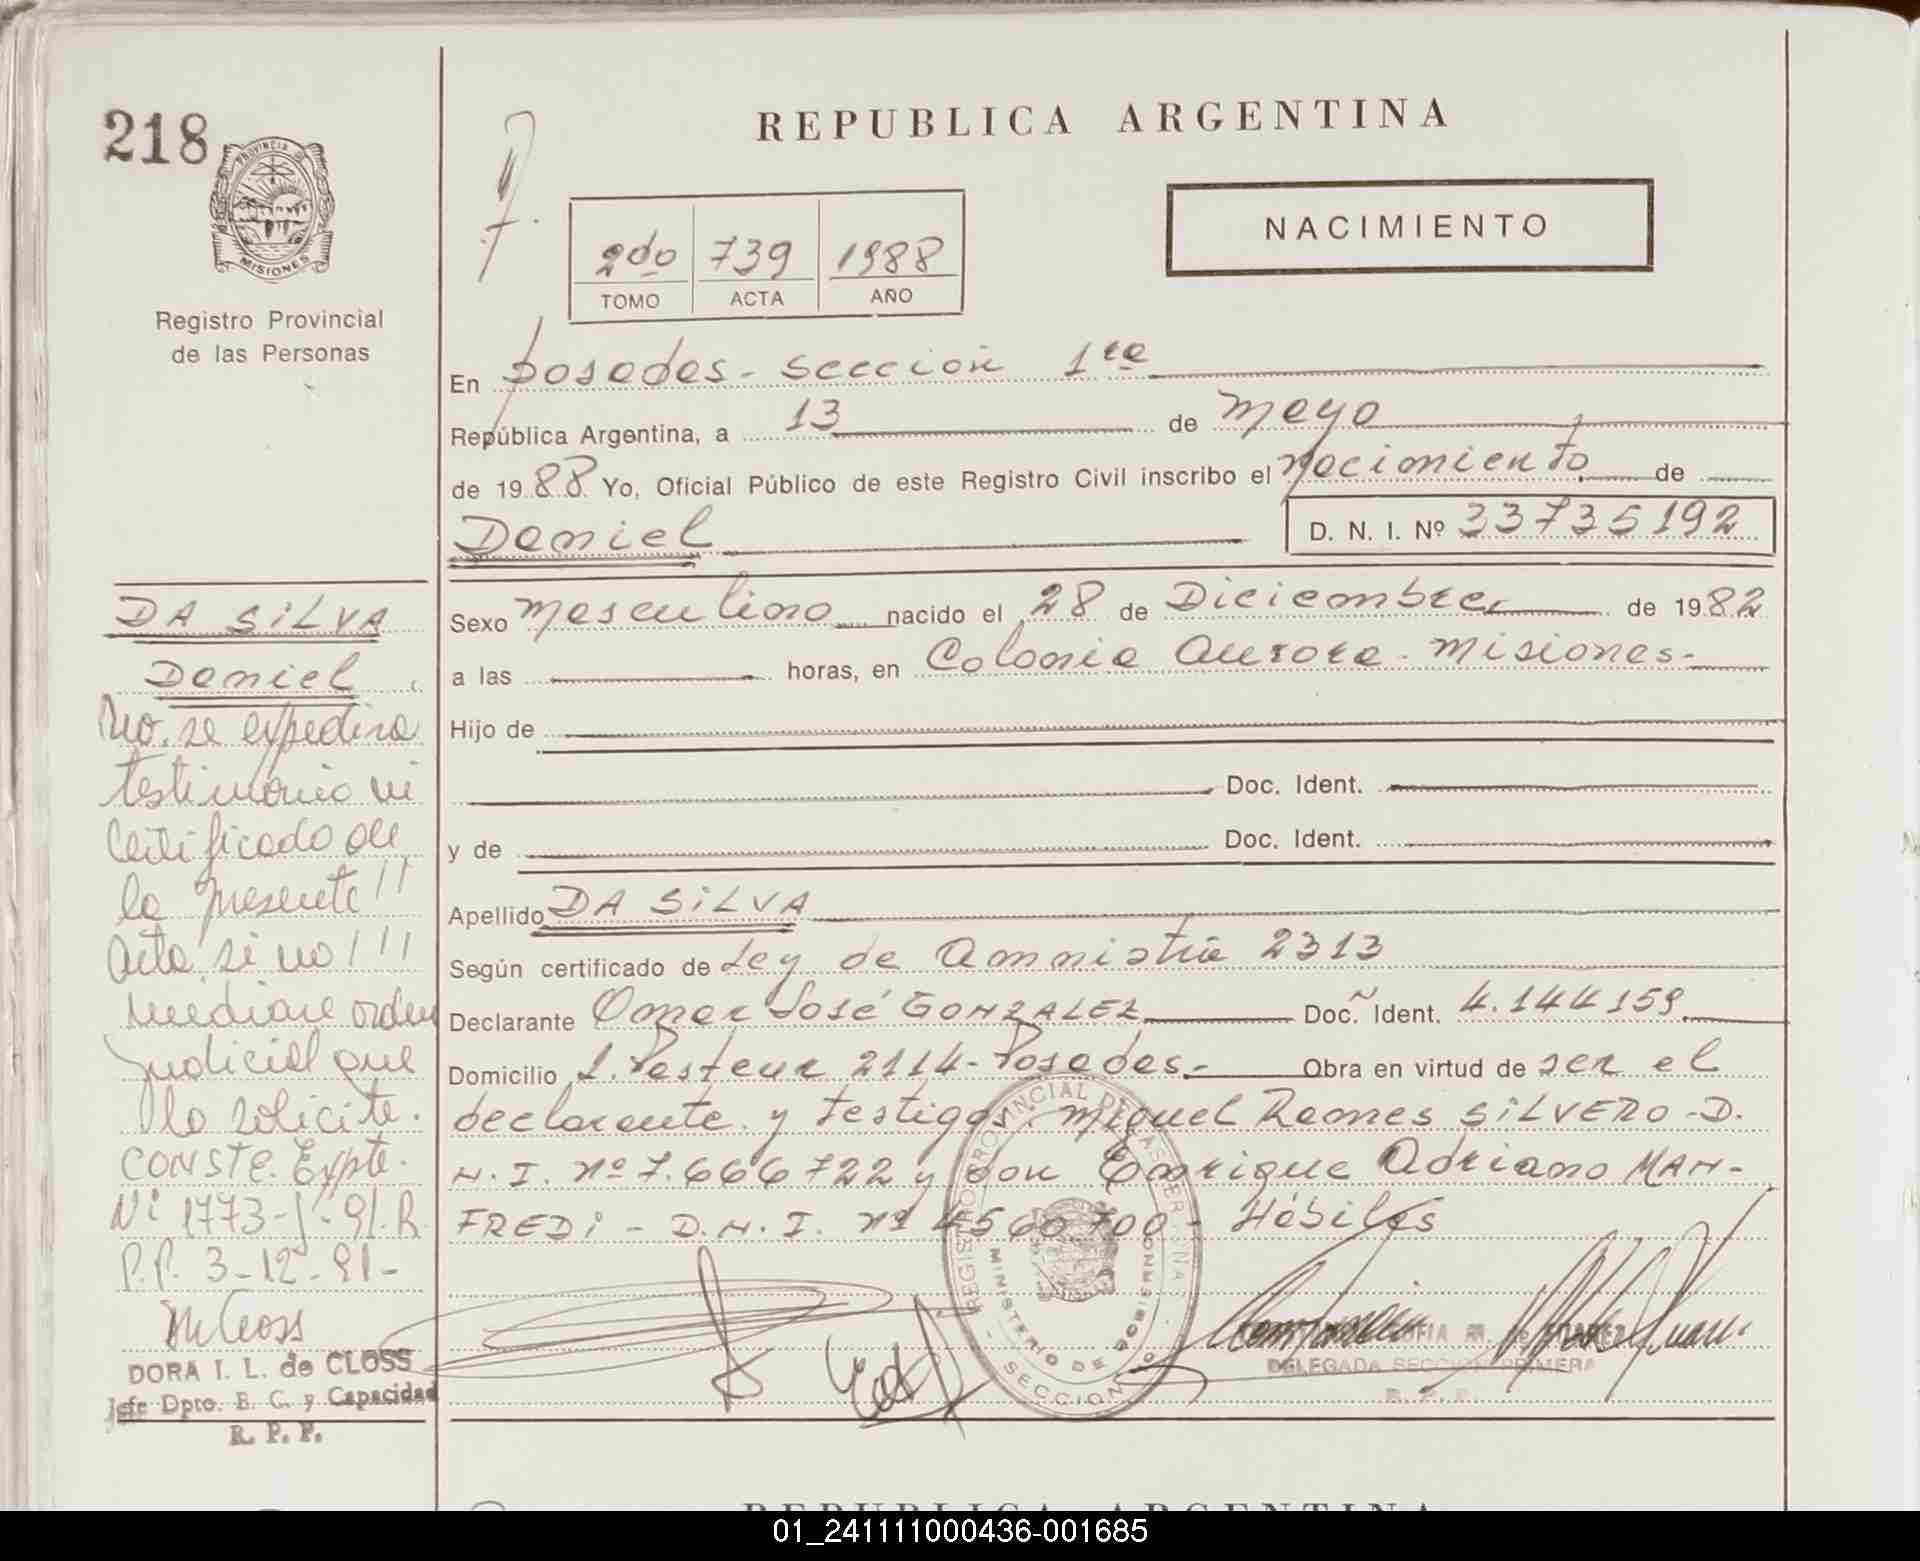 218
PROVINCIA DE
MISIONES
Registro Provincial
de las Personas
REPUBLICA ARGENTINA
NACIMIENTO
2do 739 1988
TOMO ACTA AÑO
En posadas - seccion 1ra
República Argentina, a 13 de mayo
de 1988 Yo, Oficial Público de este Registro Civil inscribo el nacimiento de
Daniel D. N. I. Nº 33735192
Sexo masculino nacido el 28 de Diciembre de 1982
a las horas, en Colonia Aurora - Misiones-
Hijo de
Doc. Ident.
y de Doc. Ident.
Apellido DA SiLVA
Según certificado de Ley de Amnistia 2313
Declarante Omar José GONZALEZ Doc. Ident. 4.144159
Domicilio L. Pasteur 2114 - Posadas.- Obra en virtud de ser el
declarante y testigos: Miguel Ramos SiLVERO - D.
N. I. nº 7.666722 y don Enrique Adriano MAN-
FREDi - D. N. I. nº 4560700 - Hábiles
DA SiLVA
Daniel
No. se expedira
testimonio ni
Certificado de
la presente!!
Acta, si no!!!
mediare orden
judicial que
lo solicite.
CONSTE. Expte.
Nº 1773-J-91. R.
P.P. 3-12-91-
DORA I. L. de CLOSS
Jefe Dpto. E. C. y Capacidad
R. P. P.
REGISTRO PROVINCIAL DE LAS PERSONAS
MINISTERIO DE GOBIERNO
SECCION
DELEGADA SECCION PRIMERA
R. P. P.
REPUBLICA ARGENTINA
01_241111000436-001685